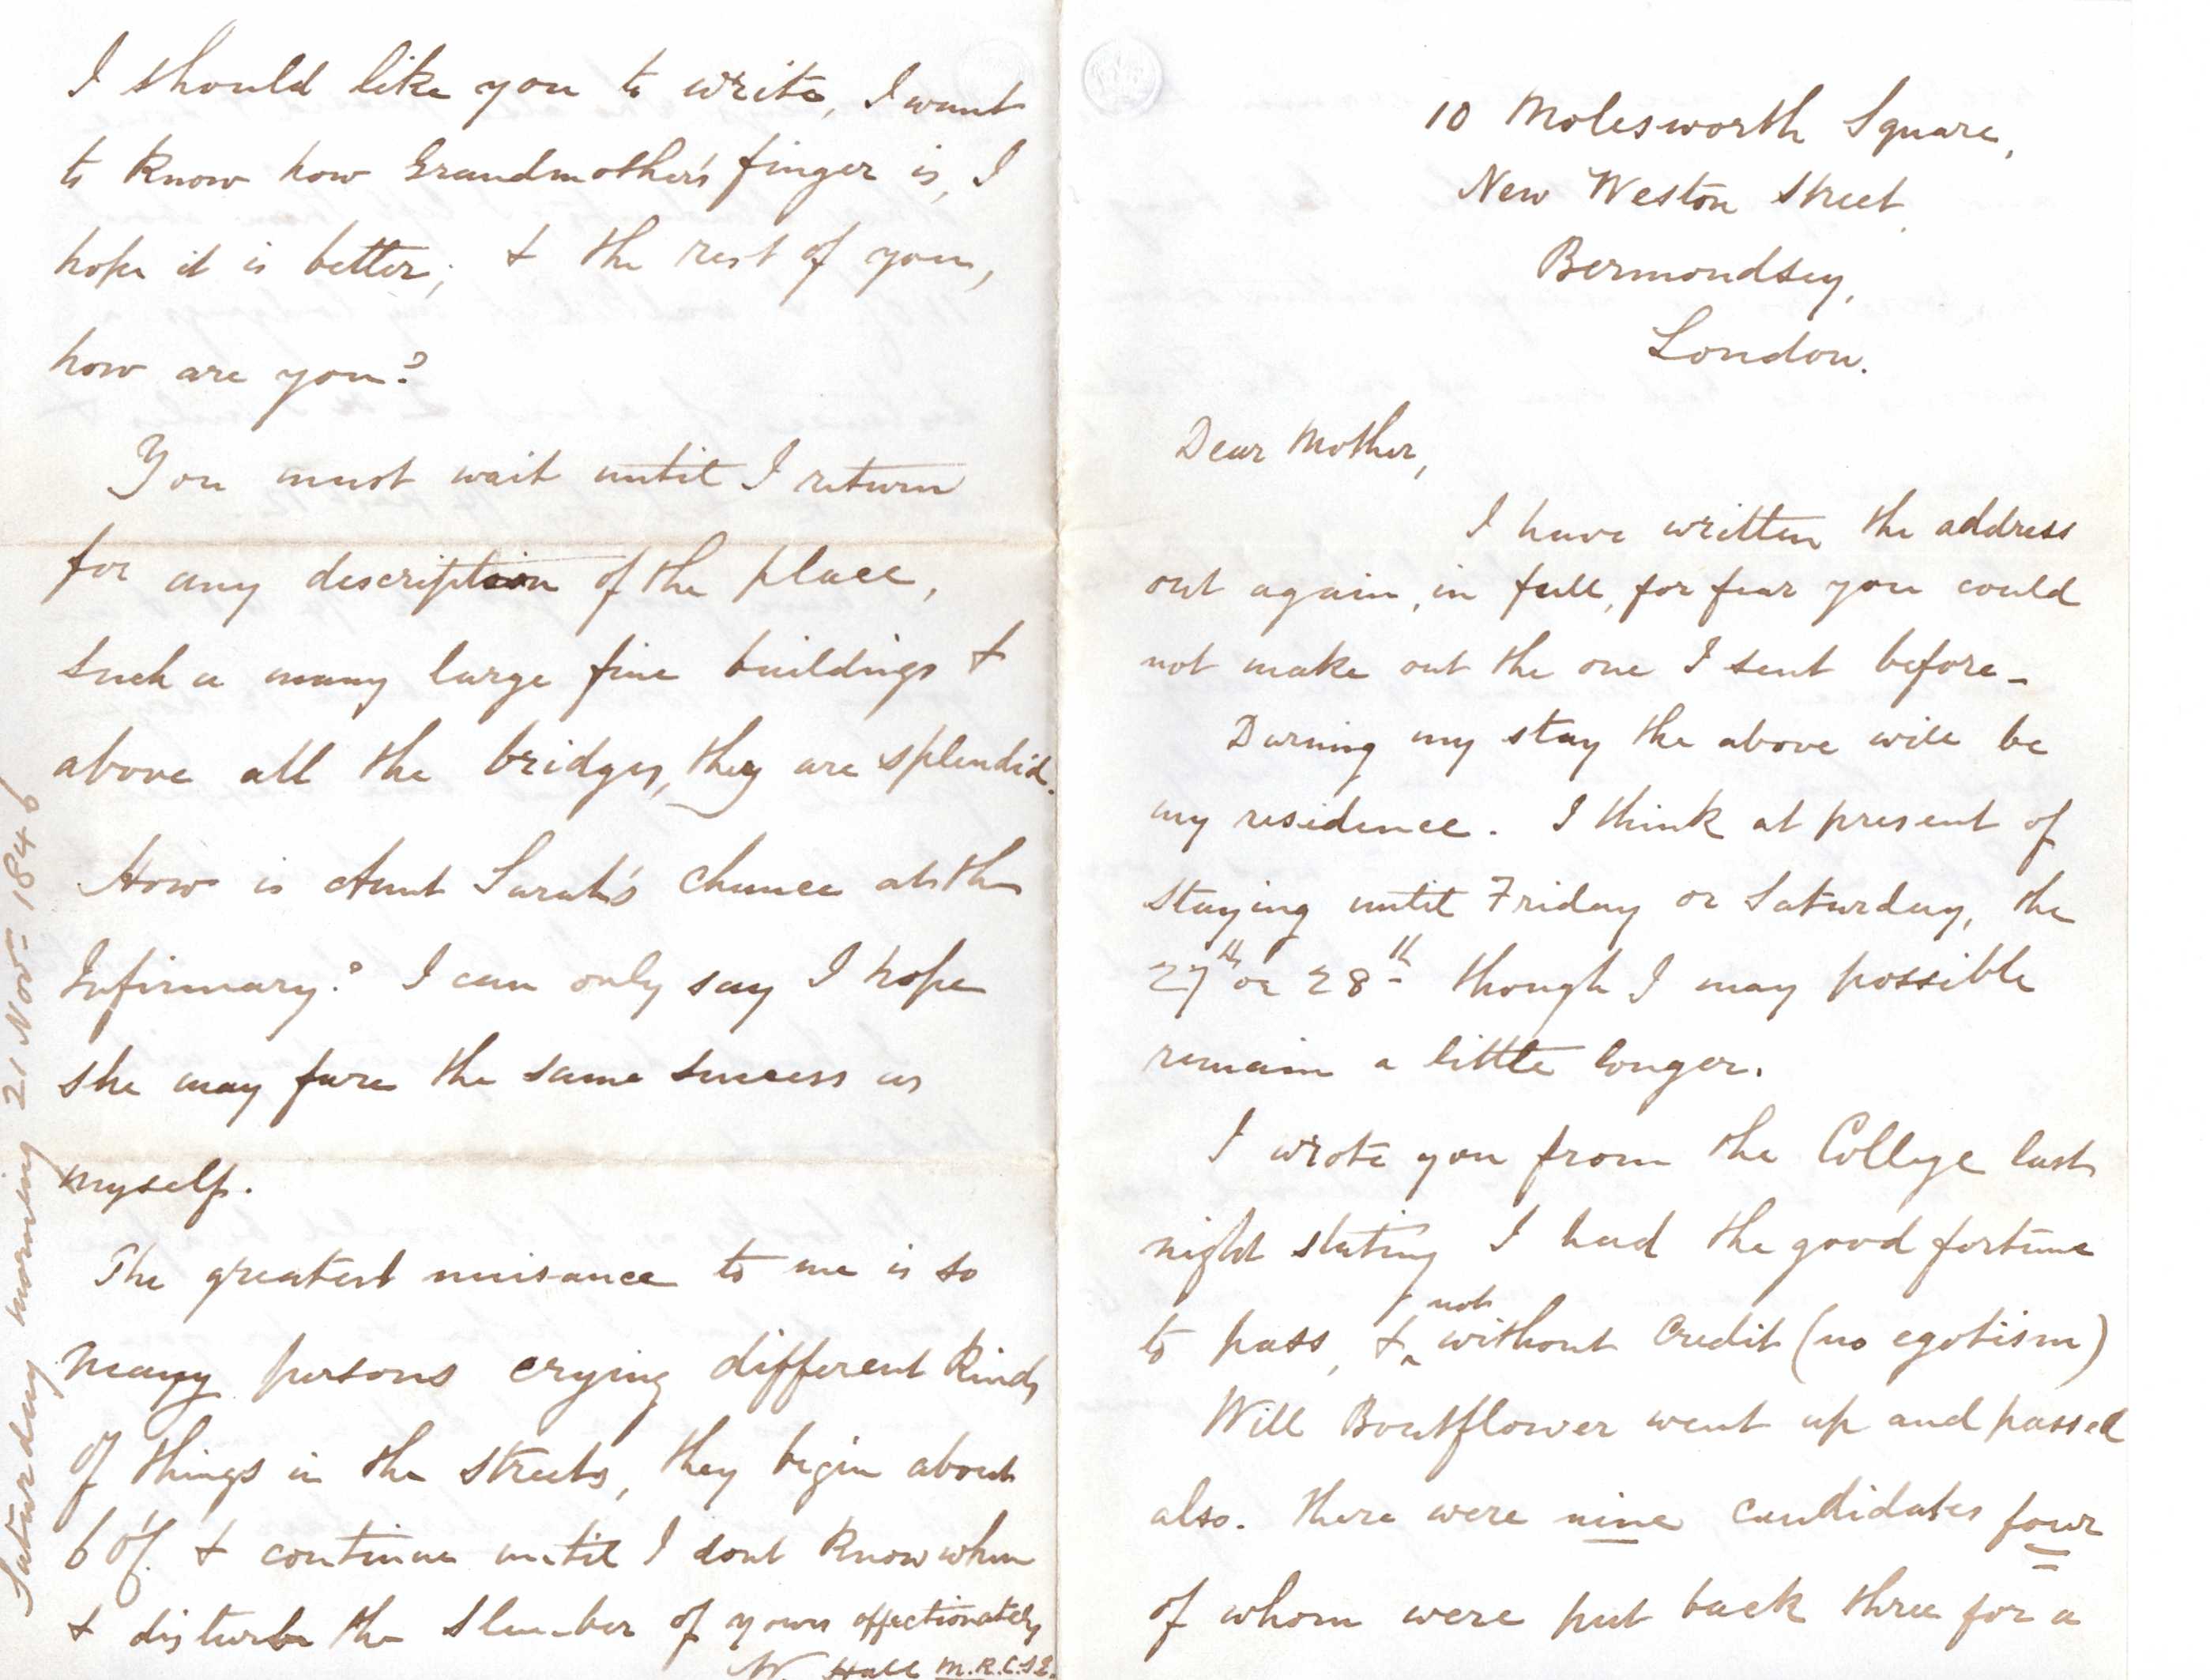 10 Molesworth Square,
New Weston Street,
Bermondsey,
London.
Dear Mother,
I have written the address
out again, in full, for fear you could
not make out the one I sent before_
During my stay the above will be
my residence. I think at present of
staying until Friday or Saturday, the
27th or 28th though I may possible
remain a little longer.
I wrote you from the College last
night stating I had the good fortune
to pass, & not without credit (no egotism)
Will Boutflower went up and passed
also. There were nine candidates four
of whom were put back three for a
I should like you to write, I want
to know how Grandmother's finger is, I
hope it is better; & the rest of you,
how are you?
You must wait until I return
for any description of the place,
such a many large fine buildings &
above all the bridges, they are splendid.
How is Aunt Sarah's chance at the
Infirmary? I can only say I hope
she may fare the same success as
myself.
The greatest nuisance to me is so
many persons crying different kinds
of things in the streets, they begin about
6 o'c. & continue until I dont know when
& disturbe the slumber of yours affectionately
W. Hall M.R.C.S.E.
Saturday morning 21 Nov- 1846